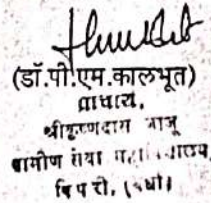 (डॉ.पी.एम.कालभूत)
प्राचार्य,
श्रीकृष्णदास जाजू
ग्रामीण सेवा महाविद्यालय
पिपरी, (वर्धा)